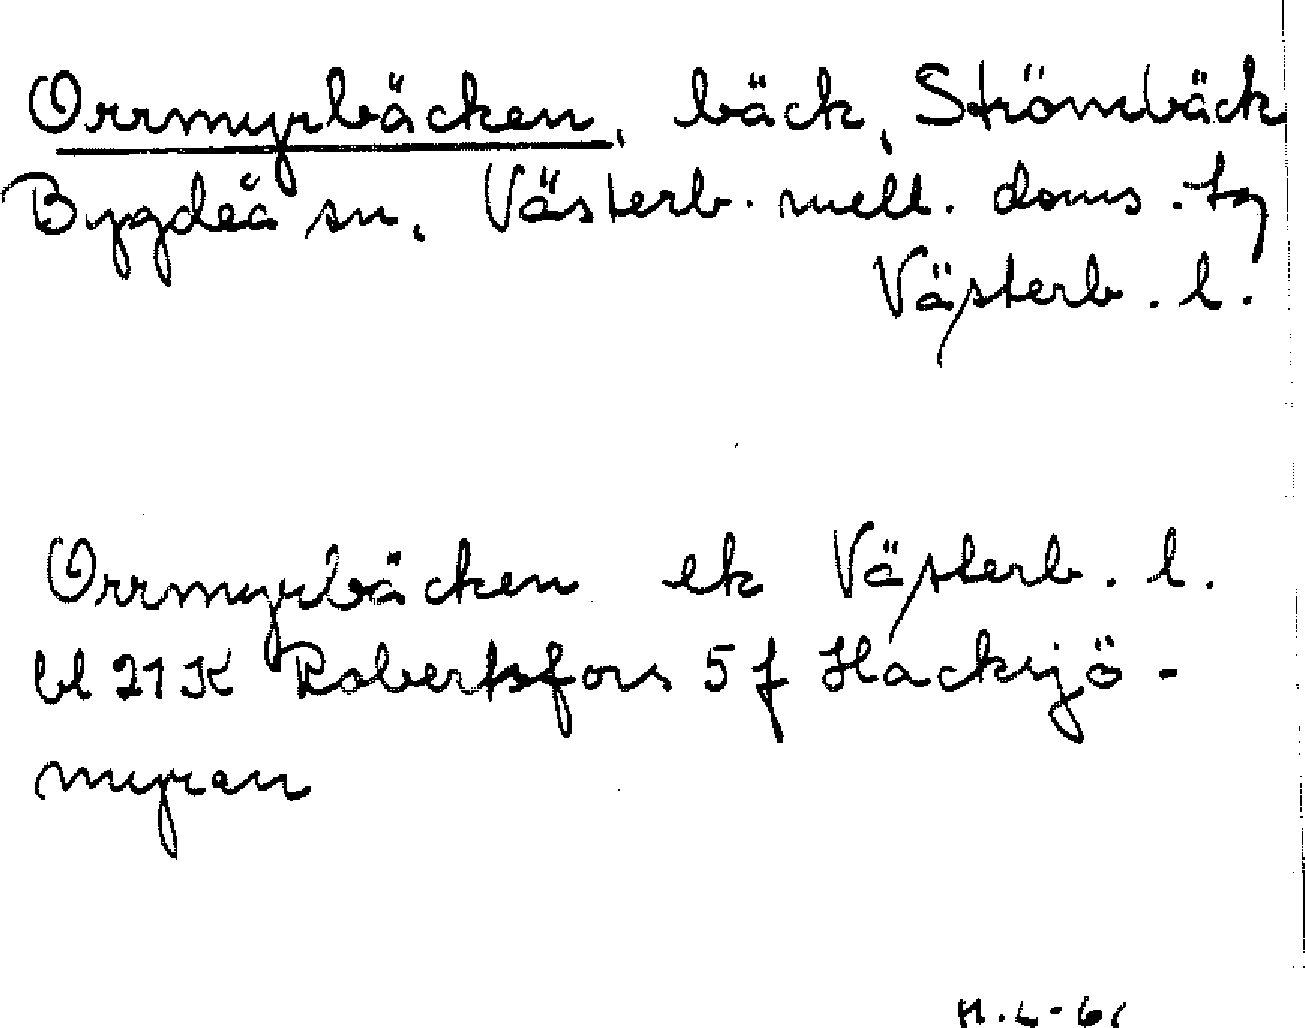 Orrmyrbäcken, bäck, Strömbäck
Bygdeå sn, Västerb. mell. doms. tg
Västerb. l.
Orrmyrbäcken ek Västerb. l.
bl 21 K Robertsfors 5 f Hacksjö-
myran
H.L-61